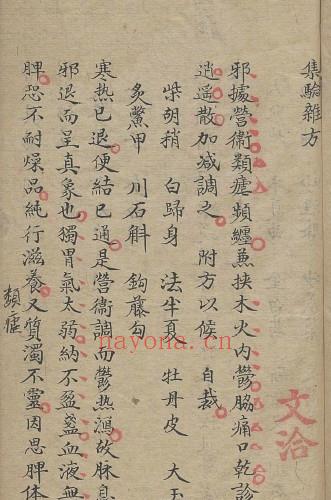 集驗雜方
邪據營衛類瘧頻纏兼挾木火內鬱脇痛口乾診
逍遥散加减調之 附方以候 自裁
柴胡稍 白歸身 法半夏 牡丹皮 大玉
炙鱉甲 川石斛 鈎藤勾
寒熱已退便結已通是營衛調而鬱熱瀉故脉息
邪退而呈真象也獨胃氣太弱納不盈盞血液無
脾恐不耐燥品純行滋養又質濁不靈因思脾体
類瘧
文洽
nayona.cn